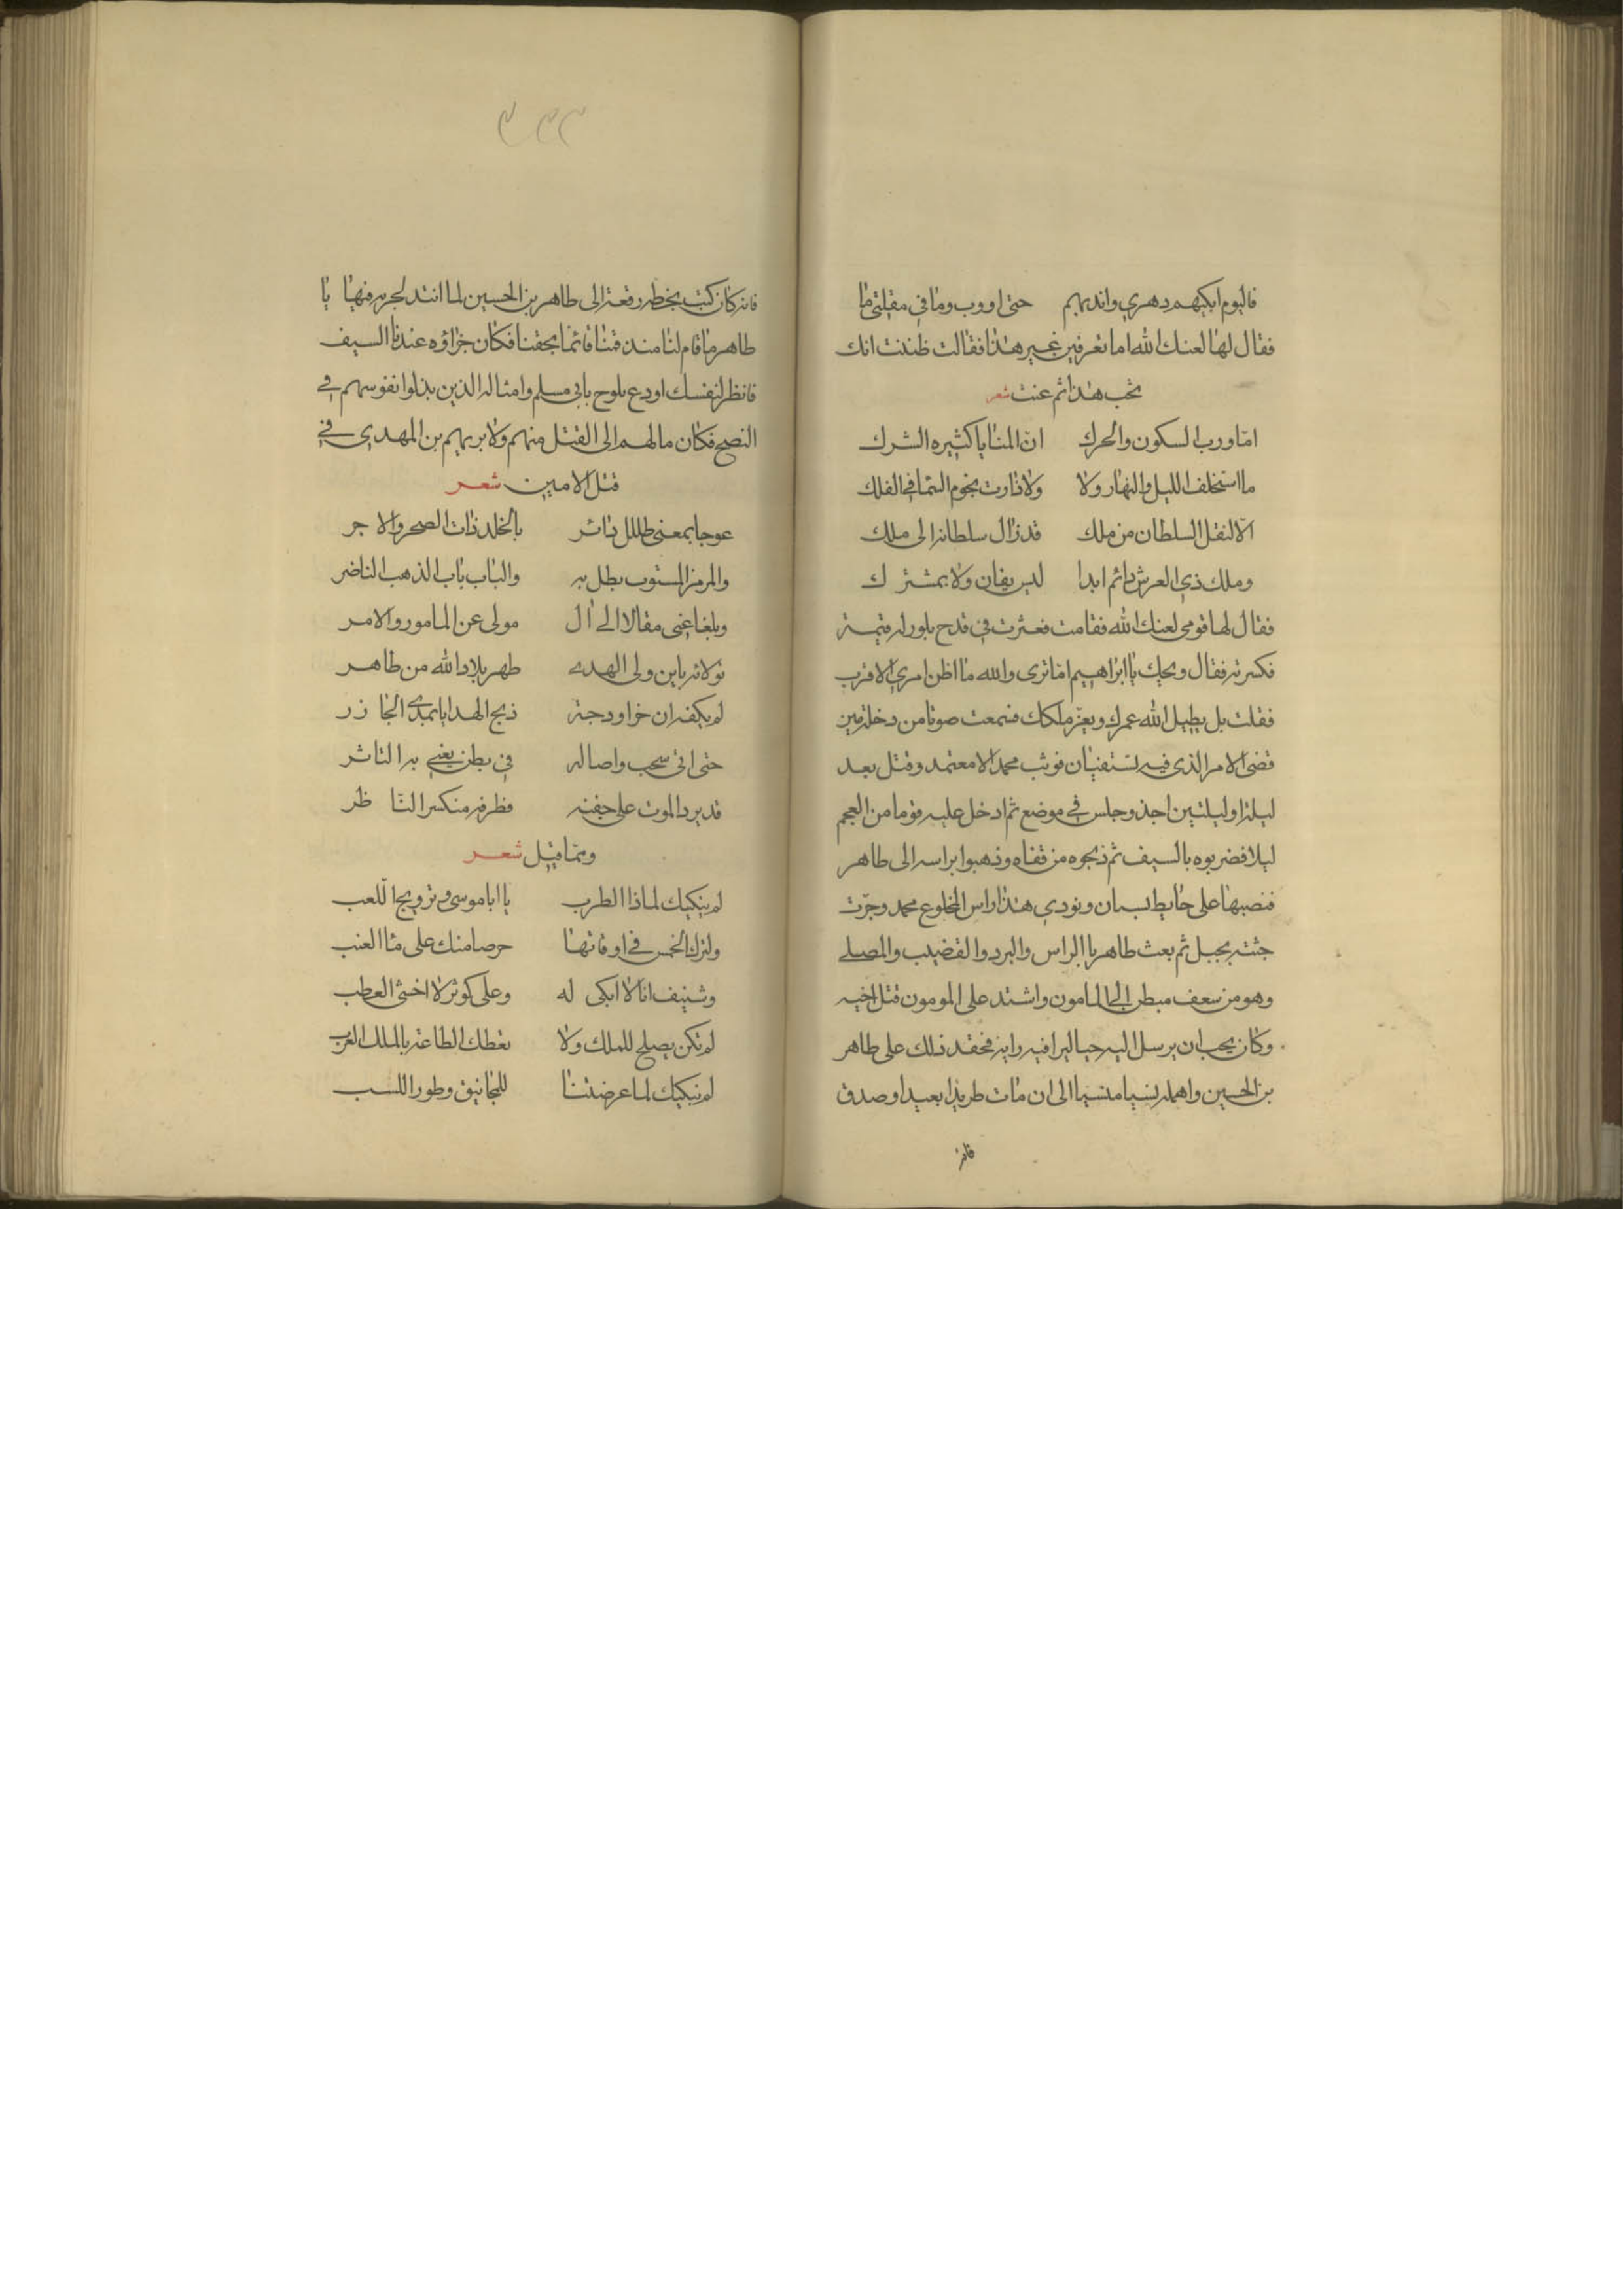 فاليوم ابكيهم دهري واندبهم حتى اووب وما في مقلتي ما
فقال لها لعنك الله اما تعرفين غير هذا فقالت ظننت انك
تحب هذا ثم غنت شعر
اما ورب السكون والحرك ان المنايا كثيره الشرك
ما استخلف الليل والنهار ولا ولا دارت نجوم السما في الفلك
الا لنقل السلطان من ملك قد زال سلطانه الى ملك
وملك ذي العرش دائم ابدا ليس بفان ولا بمشترك
فقال لها قومي لعنك الله فقامت فعثرت في قدح بلور له قيمة
فكسرته فقال ويحك يا ابراهيم اما ترى والله ما اظن امري الا قرب
فقلت بل يطيل الله عمرك ويعز ملكك فسمعت صوتا من دخلة من
قضى الامر الذي فيه تستفتيان فوثب محمد الا معتمد وقتل بعد
ليلة او ليلتين اخذ وجلس في موضع ثم ادخل عليه قوما من العجم
ليلا فضربوه بالسيف ثم ذبحوه من قفاه وذهبوا براسه الى طاهر
فنصبها على حايط بستان ونودي هذا راس المخلوع محمد وجرت
جثته بحبل ثم بعث طاهر با الراس والبرد والقضيب والمصلى
وهو من سعف مبطن الى المامون واشتد على المومون قتل اخيه
وكان يحب ان يرسل اليه حيا ليرا فيه رايه فحقد ذلك على طاهر
بن الحسين واهمله نسيا منسيا الى ان مات طريدا بعيدا وصدق
فانه
٣٣٣
فانه كان كتب بخطه رقعة الى طاهر بن الحسين لما انتدب لحربه فيها يا
طاهر ما قام لنا منذ قمنا قائما بحقنا فكان جزاؤه عندنا السيف
فانظر لنفسك او دع يلوح بابي مسلم وامثاله الذين بذلوا نفوسهم في
النصح فكان مالهم الى القتل منهم ولابرهيم بن المهدي في
قتل الامين شعر
عوجا بمعنى طلل داثر بالخلد ذات الصخر والاجر
والمرمر المستوب يطل به والباب باب الذهب الناضر
وبلغا عني مقالا الى ال مولى عن المامور والامر
قولا له يابن ولي الهدى طهر بلاد الله من طاهر
لم يكفه ان خرا ودجة ذبح الهدايا بمدى الجازر
حتى اتى سحب واصاله في بطن يغنى به التاثر
قد برد الموت على جفنه فطرفه منكسر الناظر
ومما قيل شعر
لم نبكيك لماذا الطرب يا ابا موسى وترويج اللعب
ولترك الخمس في اوقاتها حرصا منك على ما العنب
وشنيف انا لا ابكى له وعلى كوثر لا اخشى العطب
لم تكن يصلح للملك ولا تعطك الطاعة بالملك العرب
لم نبكيك لما عرضتنا للمجانيق وطورا للسب